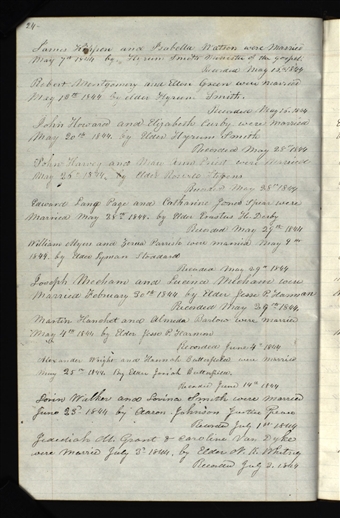 24-
James Hoppen and Isabella Watson were Married
May 7th 1844 by Hyrum Smith Minister of the gospel.
Recorded May 12th 1844
Robert Montgomery and Ellen Green were married
May 14th 1844 by Elder Hyrum Smith.
Recorded May 15. 1844
John Howard and Elizabeth were married
May 20th 1844. by Elder Hyrum Smith
Recorded May 28th 1844
John Harvey and Mary Ann were married
May 26th 1844. by Elder
Recorded May 28th 1844
Edward Page and Catharine Jones were
Married May 28th 1844. by Elder Erastus H. Derby
Recorded May 29th 1844
William Myers and Parish were married May 9th
1844. by Elder Lyman Stoddard
Recorded May 29th 1844
Joseph Mecham and Mecham were
Married February 20th 1844 by Elder Jesse P. Harmon
Recorded May 29th 1844.
Martin and Almira were married
May 4th 1844 by Elder Jesse P. Harmon
Recorded June 4th 1844
Alexander Wright and Hannah Butterfield were married
May 25th 1844 By Elder Josiah Butterfield.
Recorded June 14th 1844
Walker and Lovina Smith were married
June 23d 1844 by Aaron Johnson Justice Peace
Recorded July 1st 1844
Jedediah M. Grant & Caroline Van Dyke
were Married July 2d 1844. by Elder N. K. Whitney
Recorded July 3. 1844